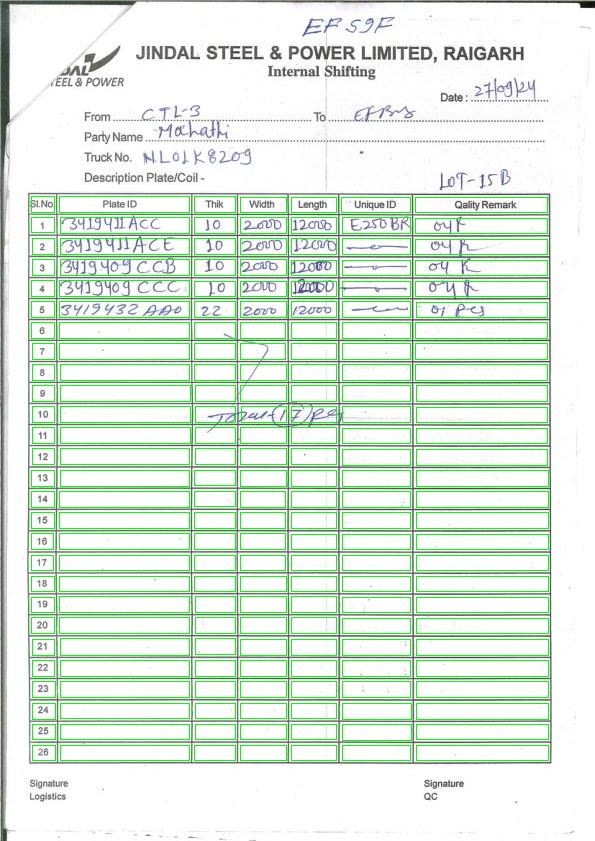 EFS9F
JINDAL STEEL & POWER LIMITED, RAIGARH
Internal Shifting
DAL
EEL & POWER
Date : 27/09/24
From CTL-3 To
Party Name Mahathi
Truck No. NL01K8209
Description Plate/Coil - LOT-15B
Sl.No Plate ID Thik Width Length Unique ID Qality Remark
1 3419411ACC 10 2000 12000 E250BR 04
2 3419411ACE 10 2000 12000 — 04
3 3419409CCB 10 2000 12000 — 04
4 3419409CCC 10 2000 12000 — 04
5 3419432AA0 22 2000 12000 — 01 Pcs
6
7
8
9
10 Total-(17) Pcs
11
12
13
14
15
16
17
18
19
20
21
22
23
24
25
26
Signature Signature
Logistics QC